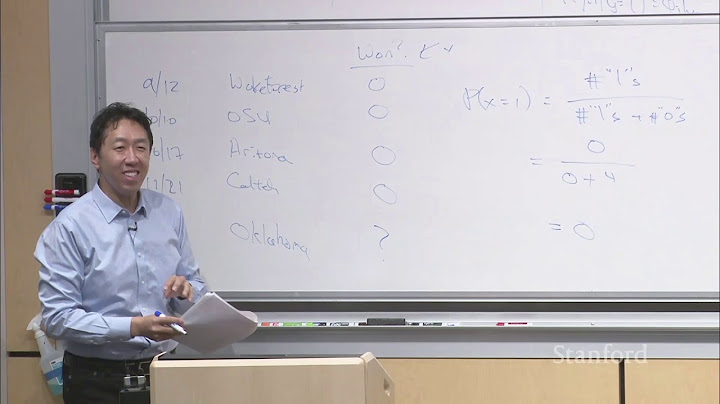 Won?
9/12 Wakeforest 0
10/10 OSU 0
10/17 Arizona 0
11/21 Caltech 0
Oklahoma ?
P(x=1) = #"1"s / #"1"s + #"0"s
= 0 / 0+4
= 0
Stanford